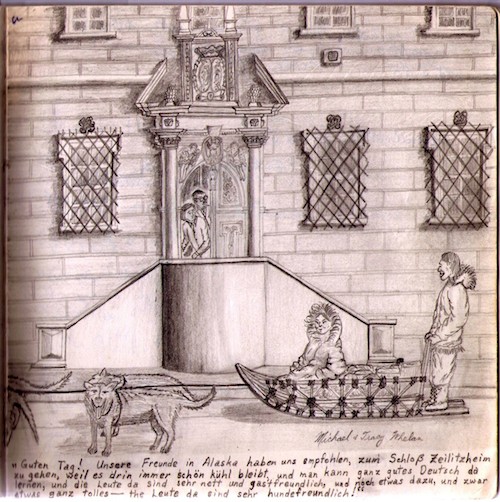 Michael & Tracy Whelan
„Guten Tag! Unsere Freunde in Alaska haben uns empfohlen, zum Schloß Zeilitzheim
zu gehen, weil es drin immer schön kühl bleibt, und man kann ganz gutes Deutsch da
lernen, und die Leute da sind sehr nett und gastfreundlich, und noch etwas dazu, und zwar
etwas ganz tolles — the Leute da sind sehr hundefreundlich!"